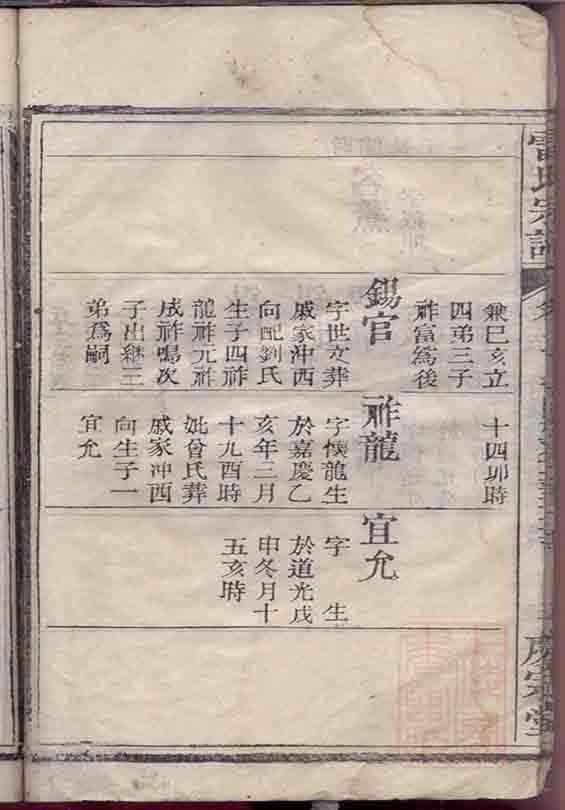 雷氏宗譜
兼巳亥立
四弟三子
祚富為後
錫官
字世文葬
戚家沖西
向配劉氏
生子四祚
龍祚元祚
成祚鳴次
子出繼三
弟為嗣
十四卯時
祚龍
字懷龍生
於嘉慶乙
亥年三月
十九酉時
妣曾氏葬
戚家沖西
向生子一
宜允
宜允
字 生
於道光戊
申冬月十
五亥時